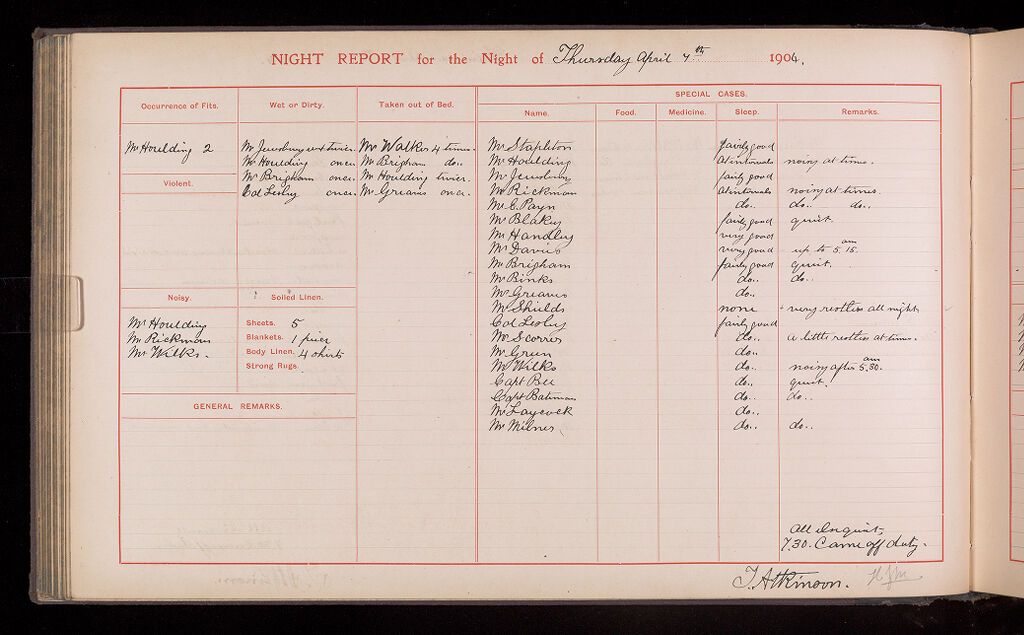 NIGHT REPORT for the Night of Thursday April 7th 1904.
Occurrence of Fits.
Mr Houlding 2
Violent.
Noisy.
Mr Houlding
Mr Rickman
Mr Wilks.
Wet or Dirty.
Mr Jewsbury wet twice.
Mr Houlding once.
Mr Brigham once.
Col Lesley once.
Soiled Linen.
Sheets. 5
Blankets. 1 pair
Body Linen. 4 shirts
Strong Rugs.
GENERAL REMARKS.
Taken out of Bed.
Mr Walker 4 times.
Mr Brigham do..
Mr Houlding twice.
Mr Greaves once.
SPECIAL CASES.
Name. Food. Medicine. Sleep. Remarks.
Mr Stapleton fairly good
Mr Houlding At intervals noisy at times.
Mr Jewsbury fairly good
Mr Rickman At intervals noisy at times.
Mr C. Payn do.. do.. do..
Mr Blakey fairly good quiet.
Mr Handley very good
Mr Davies very good up to 5.15 am
Mr Brigham fairly good quiet.
Mr Binks do.. do..
Mr Greaves do..
Mr Shields none very restless all night
Col Lesley fairly good
Mr Scorrer do.. a little restless at times.
Mr Green do..
Mr Wilks do.. noisy after 5.30. am
Capt Bee do.. quiet.
Capt Bateman do.. do..
Mr Laycock do..
Mr Milnes do.. do..
All in quiet
7.30. Came off duty.
T. Atkinson.